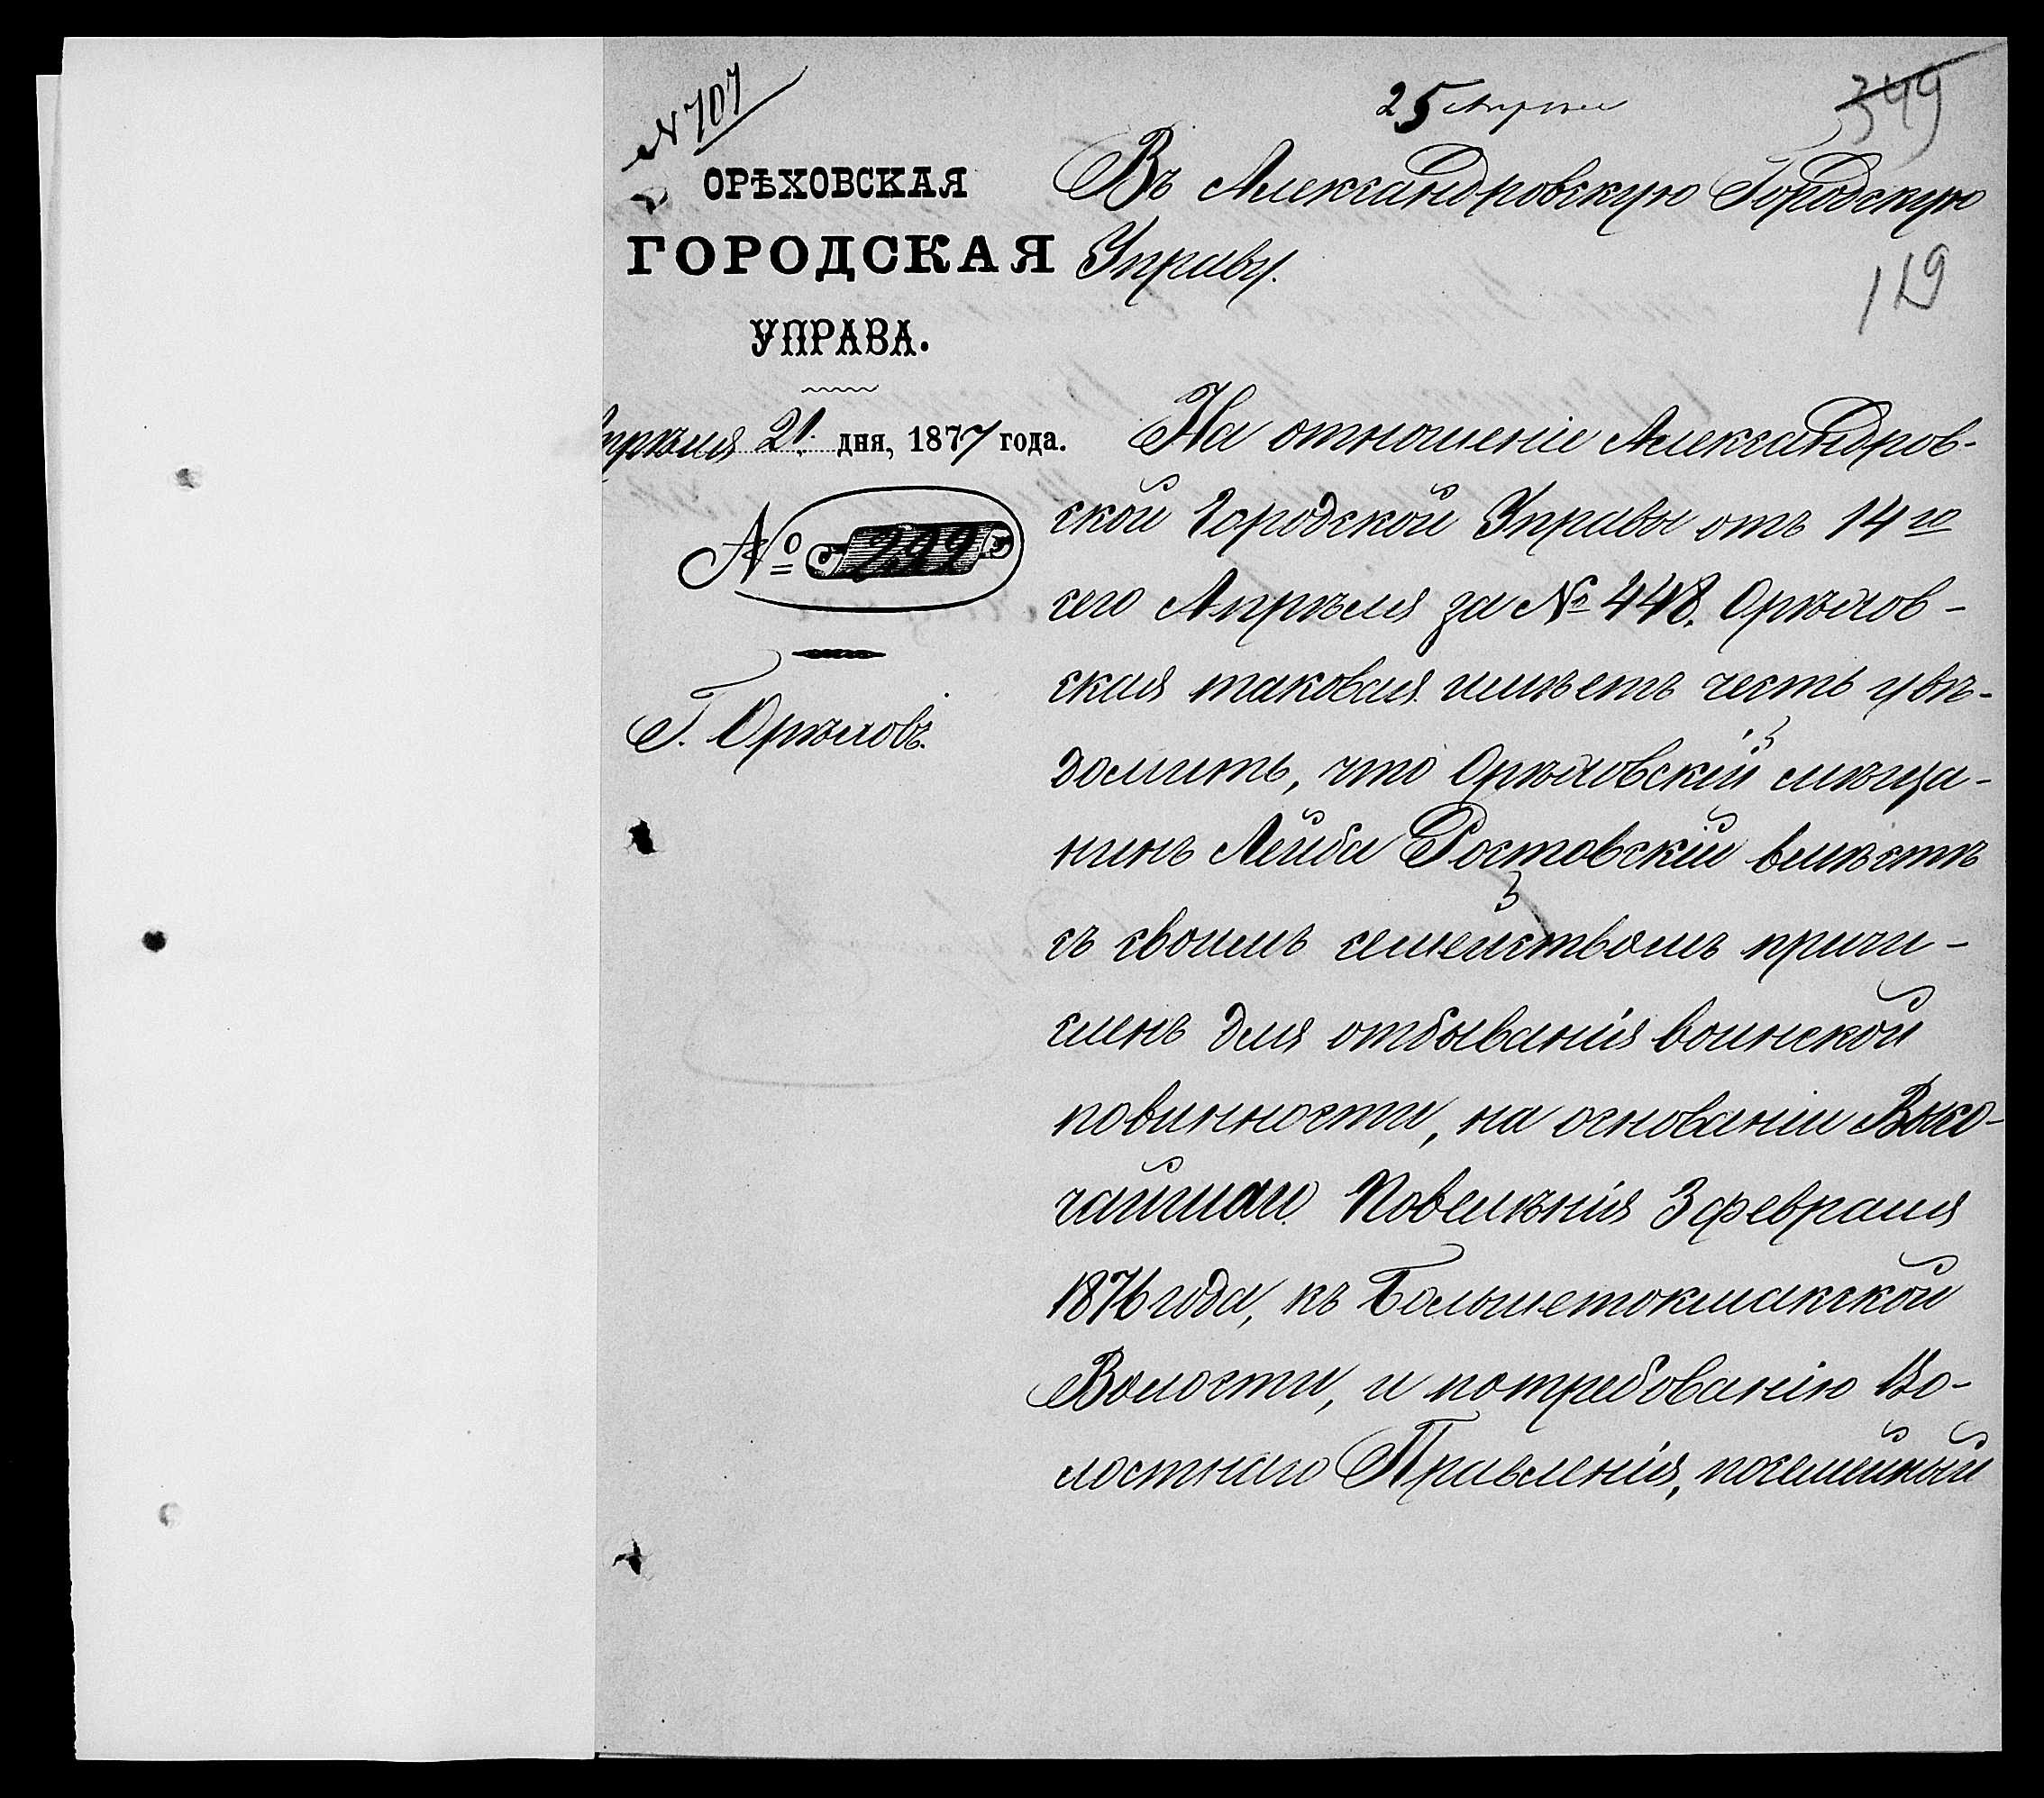 № 707
25 Апреля
349
119
ОРѢХОВСКАЯ
ГОРОДСКАЯ
УПРАВА.
Апрѣля 21 дня, 1877 года.
№ 292
Г. Орѣховъ.
Въ Александровскую Городскую
Управу.
На отношеніе Александров-
ской Городской Управы отъ 14го
сего Апрѣля за № 448. Орѣхов-
ская таковая имѣетъ честь увѣ-
домить, что Орѣховскій мѣща-
нинъ Лейба Ростовскій вмѣстѣ
съ своимъ семействомъ причи-
сленъ для отбыванія воинской
повинности, на основаніи Высо-
чайшаго Повелѣнія 3 февраля
1876 года, къ Большетокмакской
Волости, и потребованію Во-
лостнаго Правленія, посемейный